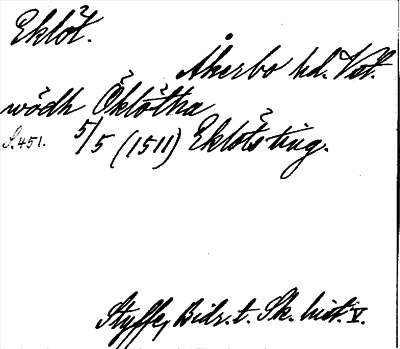 Eklöt.
Åkerbo hd. Vstm.
wödh Öklötha
S. 451. 5/5 (1511) Eklötsting.
Styffe, Bidr. t. Sk. hist. V.